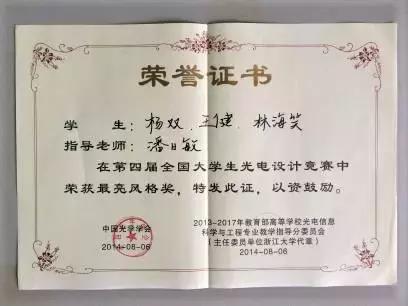 荣誉证书
学 生：杨双、王健、林海笑
指导老师：潘日敏
在第四届全国大学生光电设计竞赛中
荣获最亮风格奖，特发此证，以资鼓励。
中国光学学会
2014-08-06
2013-2017年教育部高等学校光电信息
科学与工程专业教学指导分委员会
（主任委员单位浙江大学代章）
2014-08-06